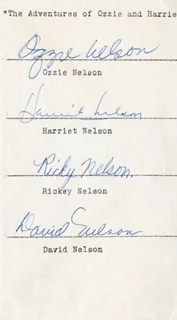 "The Adventures of Ozzie and Harrie
Ozzie Nelson
Ozzie Nelson
Harriet Nelson
Harriet Nelson
Ricky Nelson
Rickey Nelson
David Nelson
David Nelson